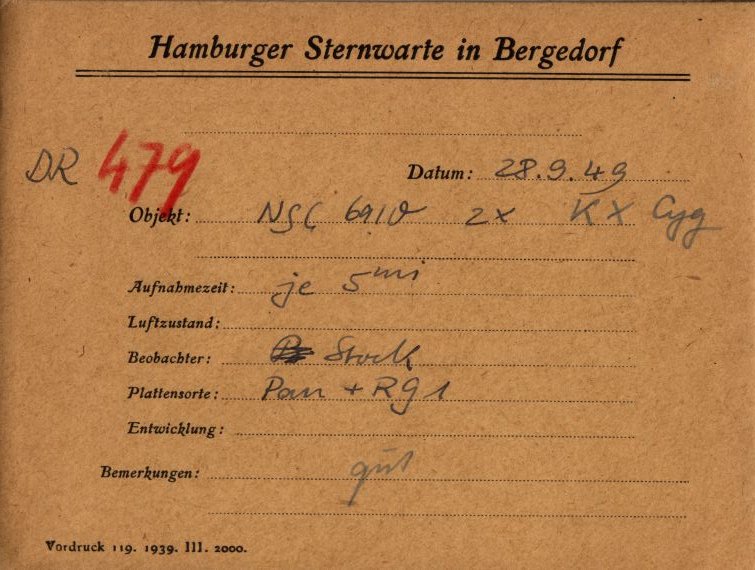 Hamburger Sternwarte in Bergedorf
DR 479
Datum: 28.9.49
Objekt: NGC 6910 2x KX Cyg
Aufnahmezeit: je 5 mi
Luftzustand:
Beobachter: Stock
Plattensorte: Pan + RG1
Entwicklung:
Bemerkungen: gut
Vordruck 119. 1939. III. 2000.